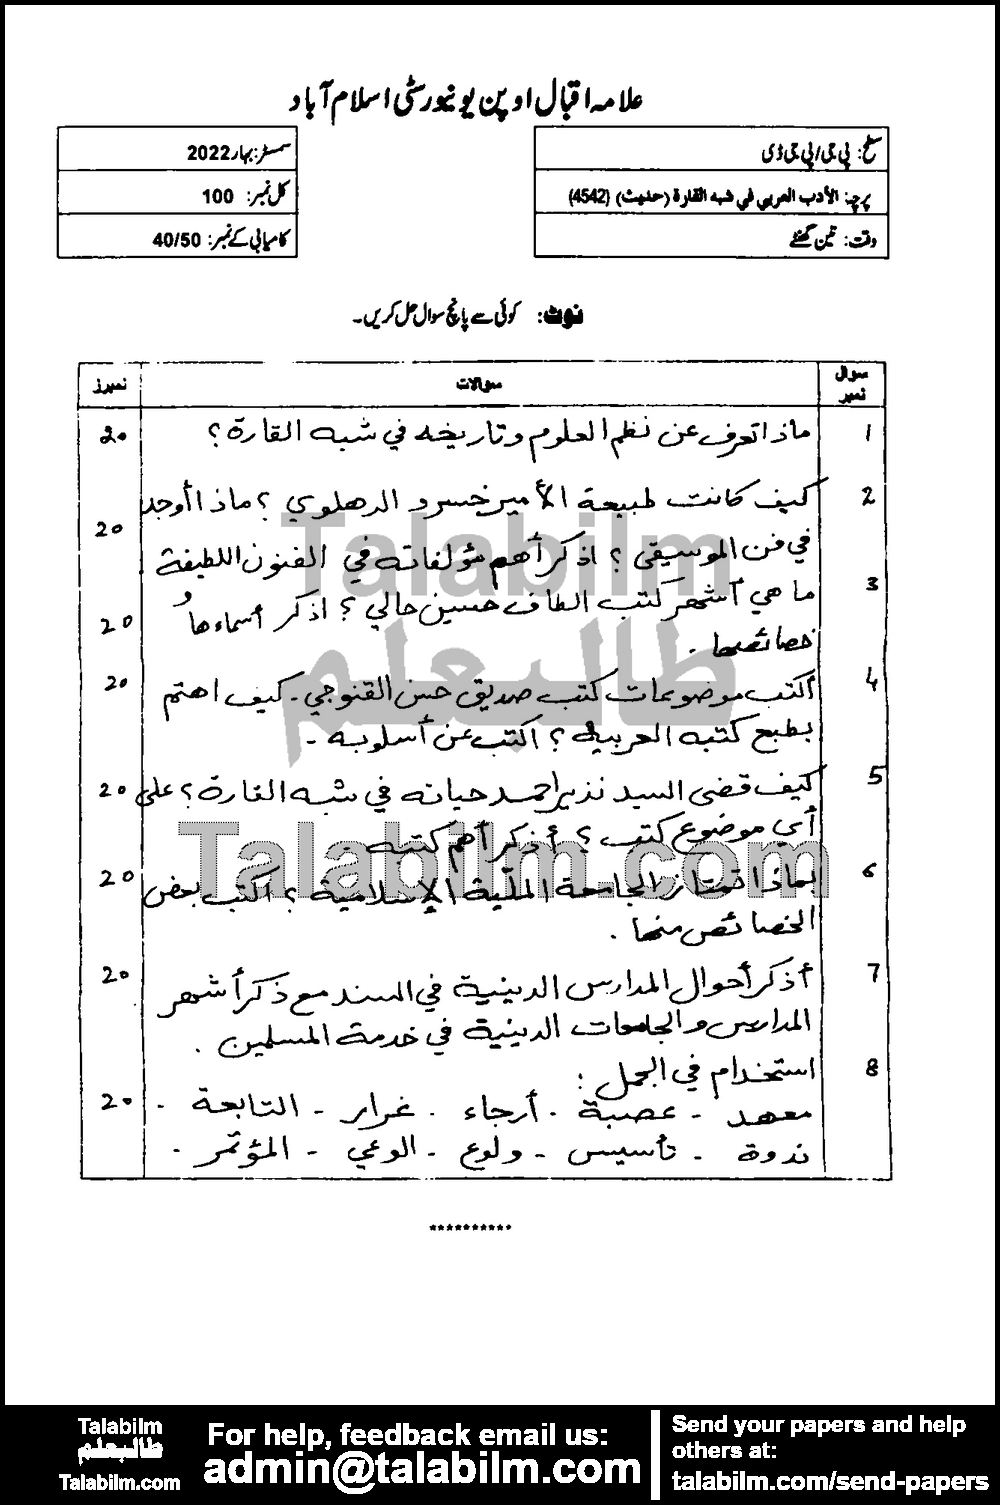 علامہ اقبال اوپن یونیورسٹی اسلام آباد
سطح: پی جی/پی جی ڈی
سمسٹر: بہار 2022
پرچہ: الأدب العربي في شبه القارة (حديث) (4542)
کل نمبر: 100
وقت: تین گھنٹے
کامیابی کے نمبر: 40/50
نوٹ: کوئی سے پانچ سوال حل کریں۔
سوال نمبر سوالات نمبرز
1 ماذا تعرف عن نظم العلوم وتاريخه في شبه القارة؟ 20
2 كيف كانت طبيعة الأمير خسرو الدهلوي؟ ماذا أوجد
في فن الموسيقى؟ اذكر أهم مؤلفاته في الفنون اللطيفة 20
3 ما هي أشهر كتب الطاف حسين حالي؟ اذكر أسماءها و
خصائصها. 20
4 أكتب موضوعات كتب صديق حسن القنوجي. كيف اهتم 20
بطبع كتبه العربية؟ اكتب عن أسلوبه.
5 كيف قضى السيد نذير احمد حياته في شبه القارة؟ على 20
أي موضوع كتب؟ أذكر أهم كتبه.
6 لماذا تمتاز الجامعة الملّية الإسلامية؟ اكتب بعض 20
الخصائص منها.
7 أذكر أحوال المدارس الدينية في السند مع ذكر أشهر 20
المدارس والجامعات الدينية في خدمة المسلمين.
8 استخدام في الجمل:
معهد - عصبة - أرجاء - غرار - التابعة - 20
ندوة - تأسيس - ولوع - الوعي - المؤتمر -
**********
Talabilm
طالبعلم
Talabilm.com
Talabilm
طالبعلم
Talabilm.com
For help, feedback email us:
admin@talabilm.com
Send your papers and help
others at:
talabilm.com/send-papers